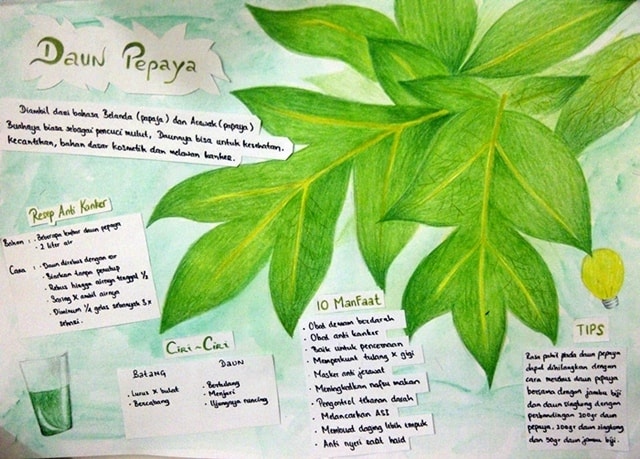 Daun Pepaya
Diambil dari bahasa Belanda (papaja) dan Arawak (papaya)
Buahnya biasa sebagai pencuci mulut, Daunnya bisa untuk kesehatan,
kecantikan, bahan dasar kosmetik dan melawan kanker.
Resep Anti Kanker
Bahan : - Beberapa lembar daun pepaya
- 2 liter air
Cara : - Daun direbus dengan air
- Biarkan tanpa penutup
- Rebus hingga airnya tinggal 1/2
- Saring & ambil airnya
- Diminum 1/4 gelas sebanyak 3x
sehari.
Ciri-Ciri
Batang
- Lurus & bulat
- Bercabang
Daun
- Bertulang
- Menjari
- Ujungnya runcing
10 Manfaat
- Obat demam berdarah
- Obat anti kanker
- Baik untuk pencernaan
- Memperkuat tulang & gigi
- Masker anti jerawat
- Meningkatkan nafsu makan
- Pengontrol tekanan darah
- Melancarkan ASI
- Membuat daging lebih empuk
- Anti nyeri saat haid
TIPS
Rasa pahit pada daun pepaya
dapat dihilangkan dengan
cara merebus daun pepaya
bersama dengan jambu biji
dan daun singkong dengan
perbandingan 200gr daun
pepaya, 200gr daun singkong
dan 50gr daun jambu biji.